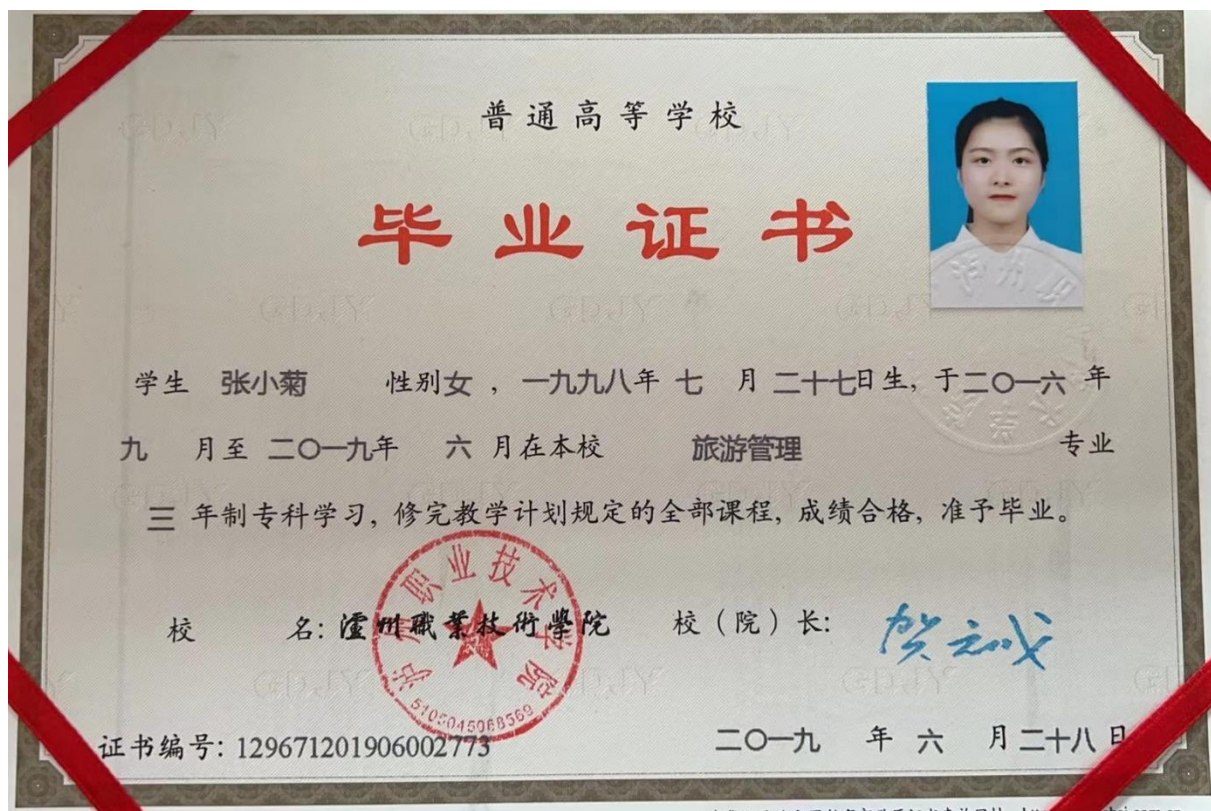 普通高等学校
毕业证书
学生 张小菊 性别女，一九九八年 七 月 二十七日生，于二〇一六 年
九 月至 二〇一九年 六 月在本校 旅游管理 专业
三 年制专科学习，修完教学计划规定的全部课程，成绩合格，准予毕业。
校 名：瀘州職業技術學院 校（院）长：贺元成
泸州职业技术学院
5105045968569
证书编号：129671201906002773
二〇一九 年 六 月 二十八 日
泸州职
GDJY